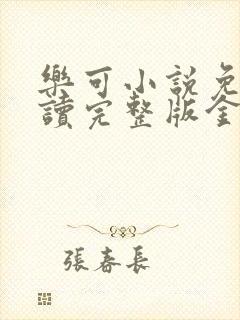 樂可小說免
讀完整版全
張春長